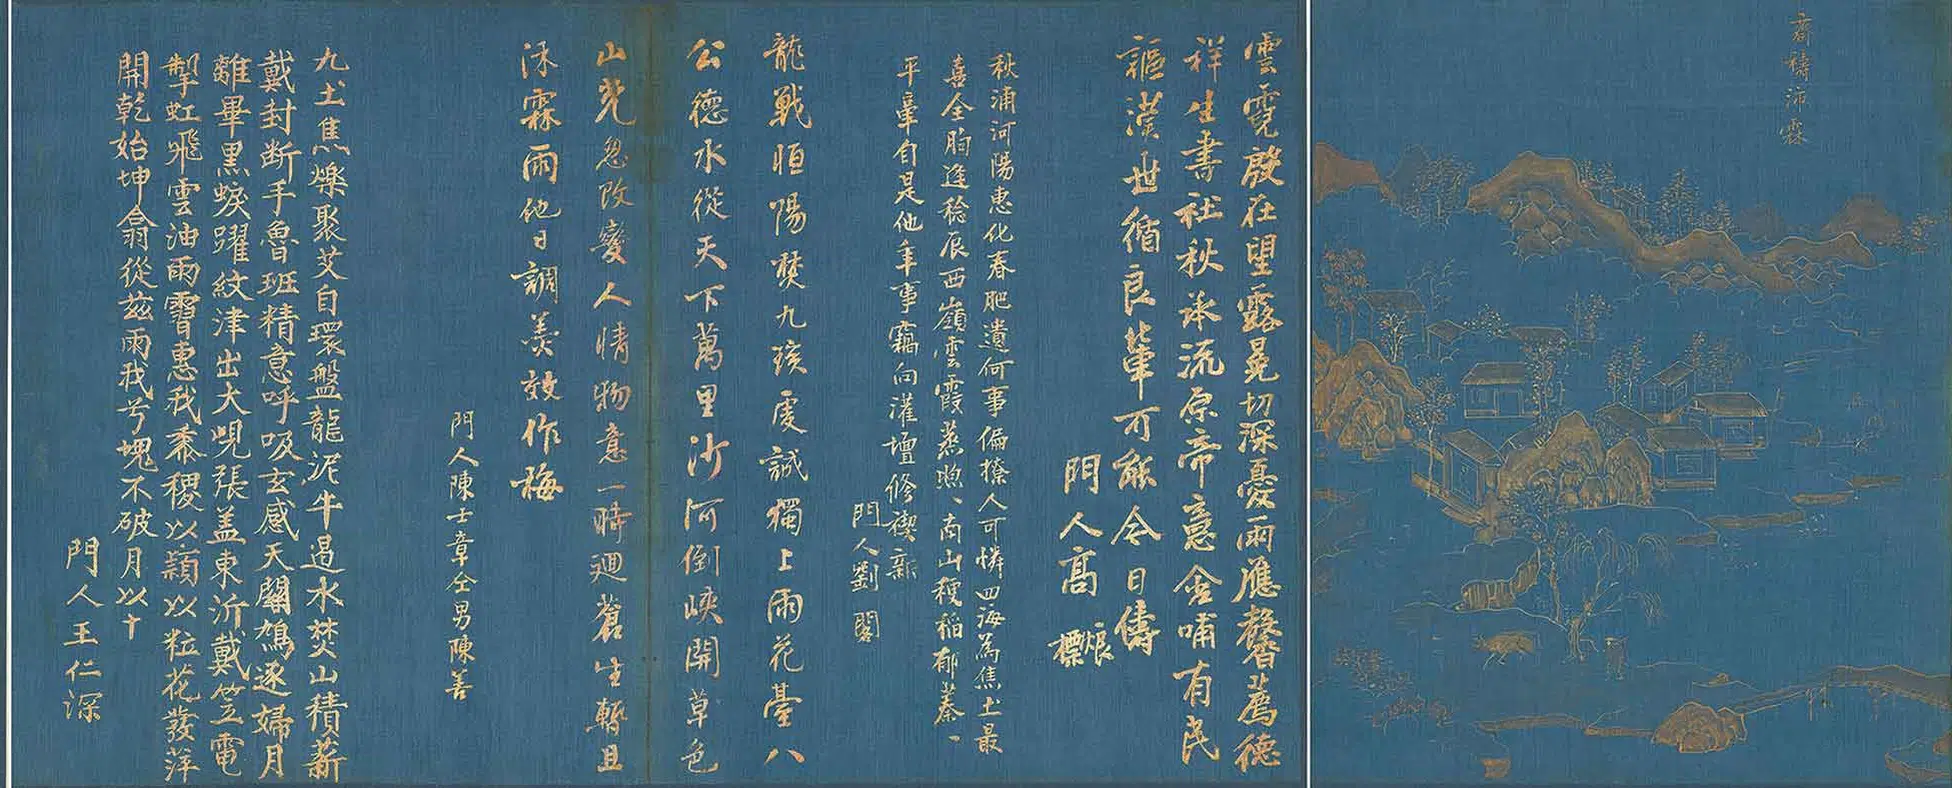 齋禱沛霖
雲霓啟在望露晃切深憂雨應馨薦德
祥生書社秋承流原帝意含哺有民
謳漢世循良輩可能今日儔
門人高烺
標
秋浦河陽惠化春肥遺何事偏撩人可憐四海為焦土最
喜全朐逢稔辰西嶺雲霞蒸煦、南山稷稻郁蓁、
平章自是他年事竊向灌壇修禊新
門人劉閣
龍戰恒陽燓九垓虔誠獨上雨花臺八
公德水從天下萬里沙河倒峽開草色
山光忽改變人情物意一時迴蒼生暫且
沐霖雨他日調羮效作梅
門人陳士章仝男陳善
九土焦爍聚艾自環盤龍泥牛遏水焚山積薪
戴封斷手魯班精意呼吸玄感天闢鳩逐婦月
離畢黑蜧躍紋津出大峴張盖東沂戴笠電
掣虹飛雲油雨霫惠我黍稷以穎以粒花發萍
開乾始坤翕從茲雨我兮塊不破月以十
門人王仁深